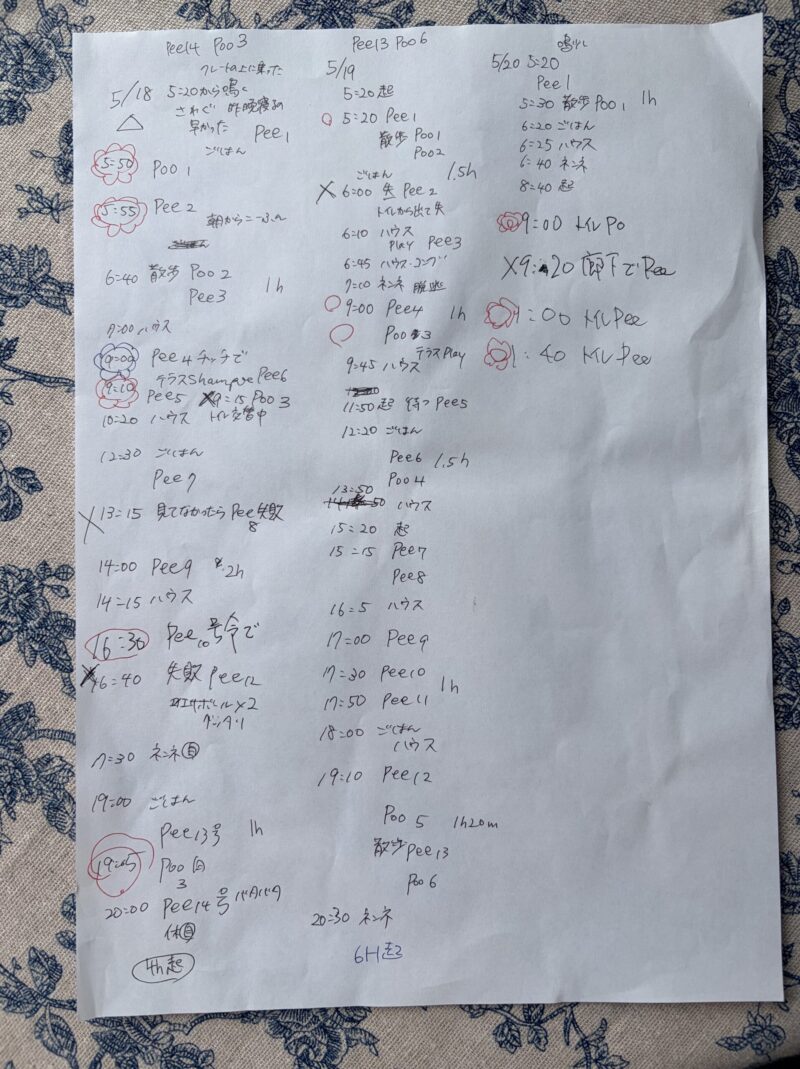 Pee14 Poo 3
クレートの上に乗った
5/18 5:20から鳴く
さわぐ 昨晩寝るの
早かった Pee 1
ごはん
5:50 Poo 1
5:55 Pee 2
朝から
6:40 散歩 Poo 2
Pee 3 1h
7:00 ハウス
9:00 Pee 4 チッチで
テラス Shampoo Pee6
9:10 Pee 5 9:15 Poo 3
トイレ交替中
10:20 ハウス
12:30 ごはん
Pee 7
13:15 見てなかったら Pee 失敗
8
14:00 Pee 9 2h
14:15 ハウス
16:30 Pee 10 号令で
16:40 失敗 Pee 12
×2
グッタリ
17:30 ネンネ
19:00 ごはん
Pee 13号 1h
19:05 Poo
3
20:00 Pee 14号 バタバタ
4h起
Pee13 Poo 6
5/19
5:20 起
5:20 Pee 1
散歩 Poo 1
Poo 2
ごはん 1.5h
6:00 失 Pee 2
トイレから出て失
6:10 ハウス
Play Pee 3
6:45 ハウス・コング
7:00 ネンネ 脱走
9:00 Pee 4 1h
Poo 3
テラス Play
9:45 ハウス
11:50 起 待つ Pee 5
12:20 ごはん
Pee 6 1.5h
Poo 4
13:50 ハウス
15:20 起
15:15 Pee 7
Pee 8
16:5 ハウス
17:00 Pee 9
17:30 Pee 10
17:50 Pee 11 1h
18:00 ごはん
ハウス
19:10 Pee 12
Poo 5 1h20m
散歩 Pee 13
Poo 6
20:30 ネンネ
6H起
鳴ナシ
5/20 5:20
Pee 1
5:30 散歩 Poo 1 1h
6:20 ごはん
6:25 ハウス
6:40 ネンネ
8:40 起
9:00 トイレ Po
×9:20 廊下で Pee
:00 トイレ Pee
1:40 トイレ Pee